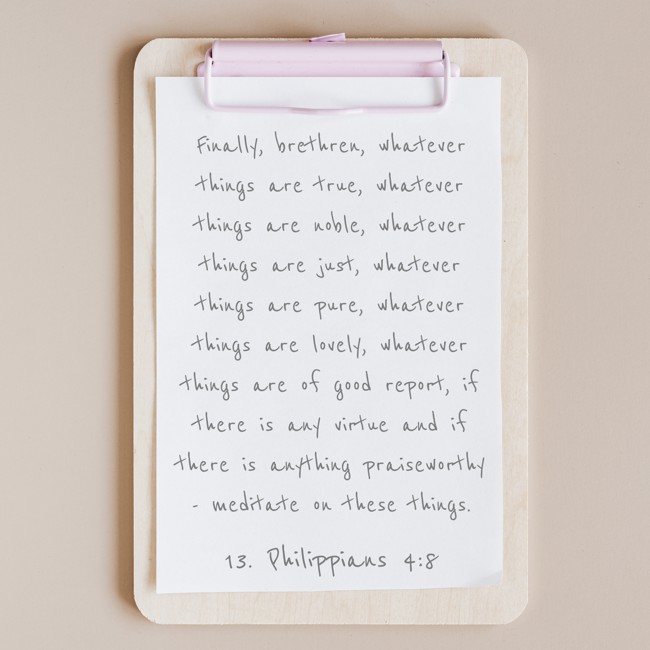 Finally, brethren, whatever
things are true, whatever
things are noble, whatever
things are just, whatever
things are pure, whatever
things are lovely, whatever
things are of good report, if
there is any virtue and if
there is anything praiseworthy
- meditate on these things.
13. Philippians 4:8